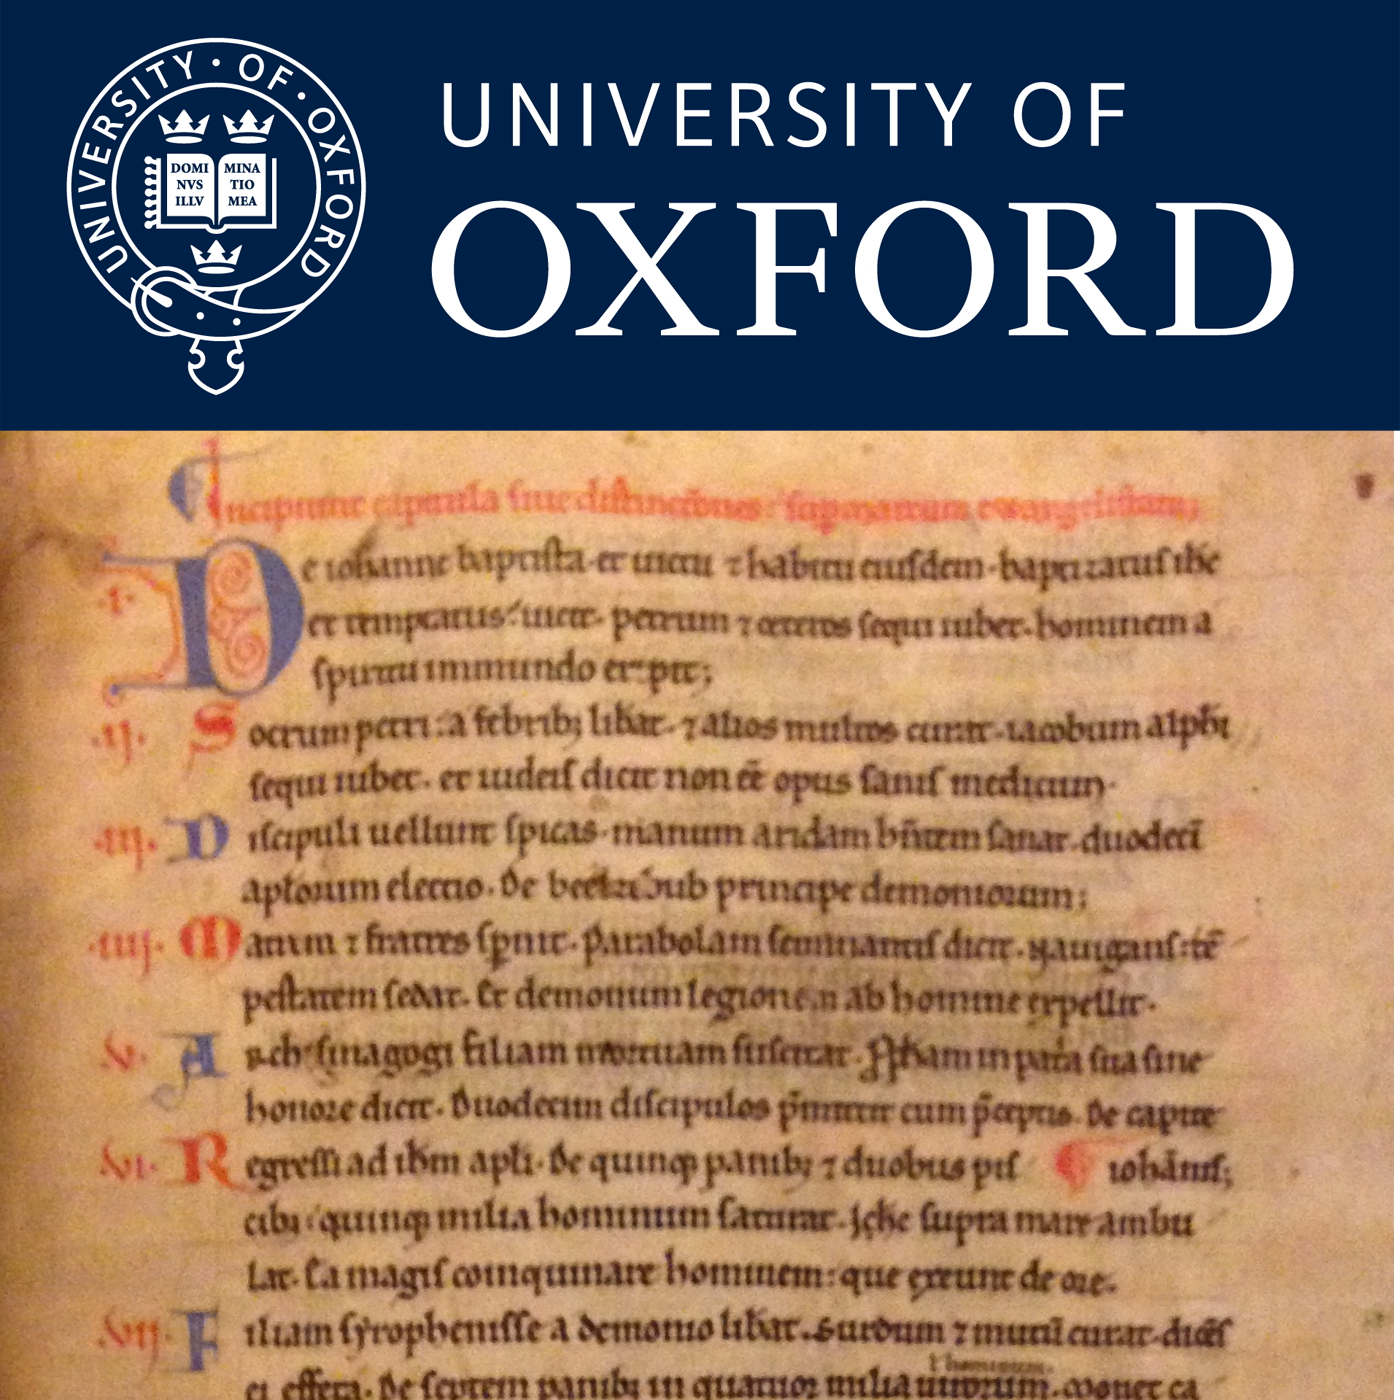 UNIVERSITY · OF · OXFORD
DOMI MINA
NVS TIO
ILLV MEA
UNIVERSITY OF
OXFORD
Incipiunt capitula siue distinctiões sup marcum ewangelistam;
.i. De iohanne baptista. et uictu ⁊ habitu eiusdem. baptizatus ihc
et temptatus: uicit. petrum ⁊ ceteros sequi iubet. hominem a
spiritu immundo eripit;
.ij. Socrum petri: a febrib; libat. ⁊ alios multos curat. iacobum alphi
sequi iubet. et iudeis dicit non eē opus sanis medicum.
.iij. Discipuli uellunt spicas. manum aridam hñtem sanat. duodecī
aplorum electio. De beelzebub principe demoniorum;
.iiij. Matrem ⁊ fratres spnit. Parabolam seminantis dicit. Nauigans: tē
pestatem sedat. Et demonum legionem ab homine expellit.
.v. Archisinagogi filiam mortuam suscitat. Ppham in patria sua sine
honore dicit. Duodecim discipulos p̄mittit cum p̄ceptis. De capite
.vi. Regressi ad ihm apli. De quinq; panib; ⁊ duobus pis iohānis;
cib; quinq; milia hominum saturat. ihc supra mare ambu
lat. Ea magis coinquinare hominem: que exeunt de ore.
.vij. Filiam syrophenisse a demonio libat. Surdum ⁊ mutū curat. dicēs
ei effeta. De septem panib; in quatuor milia uirorum. monet ca